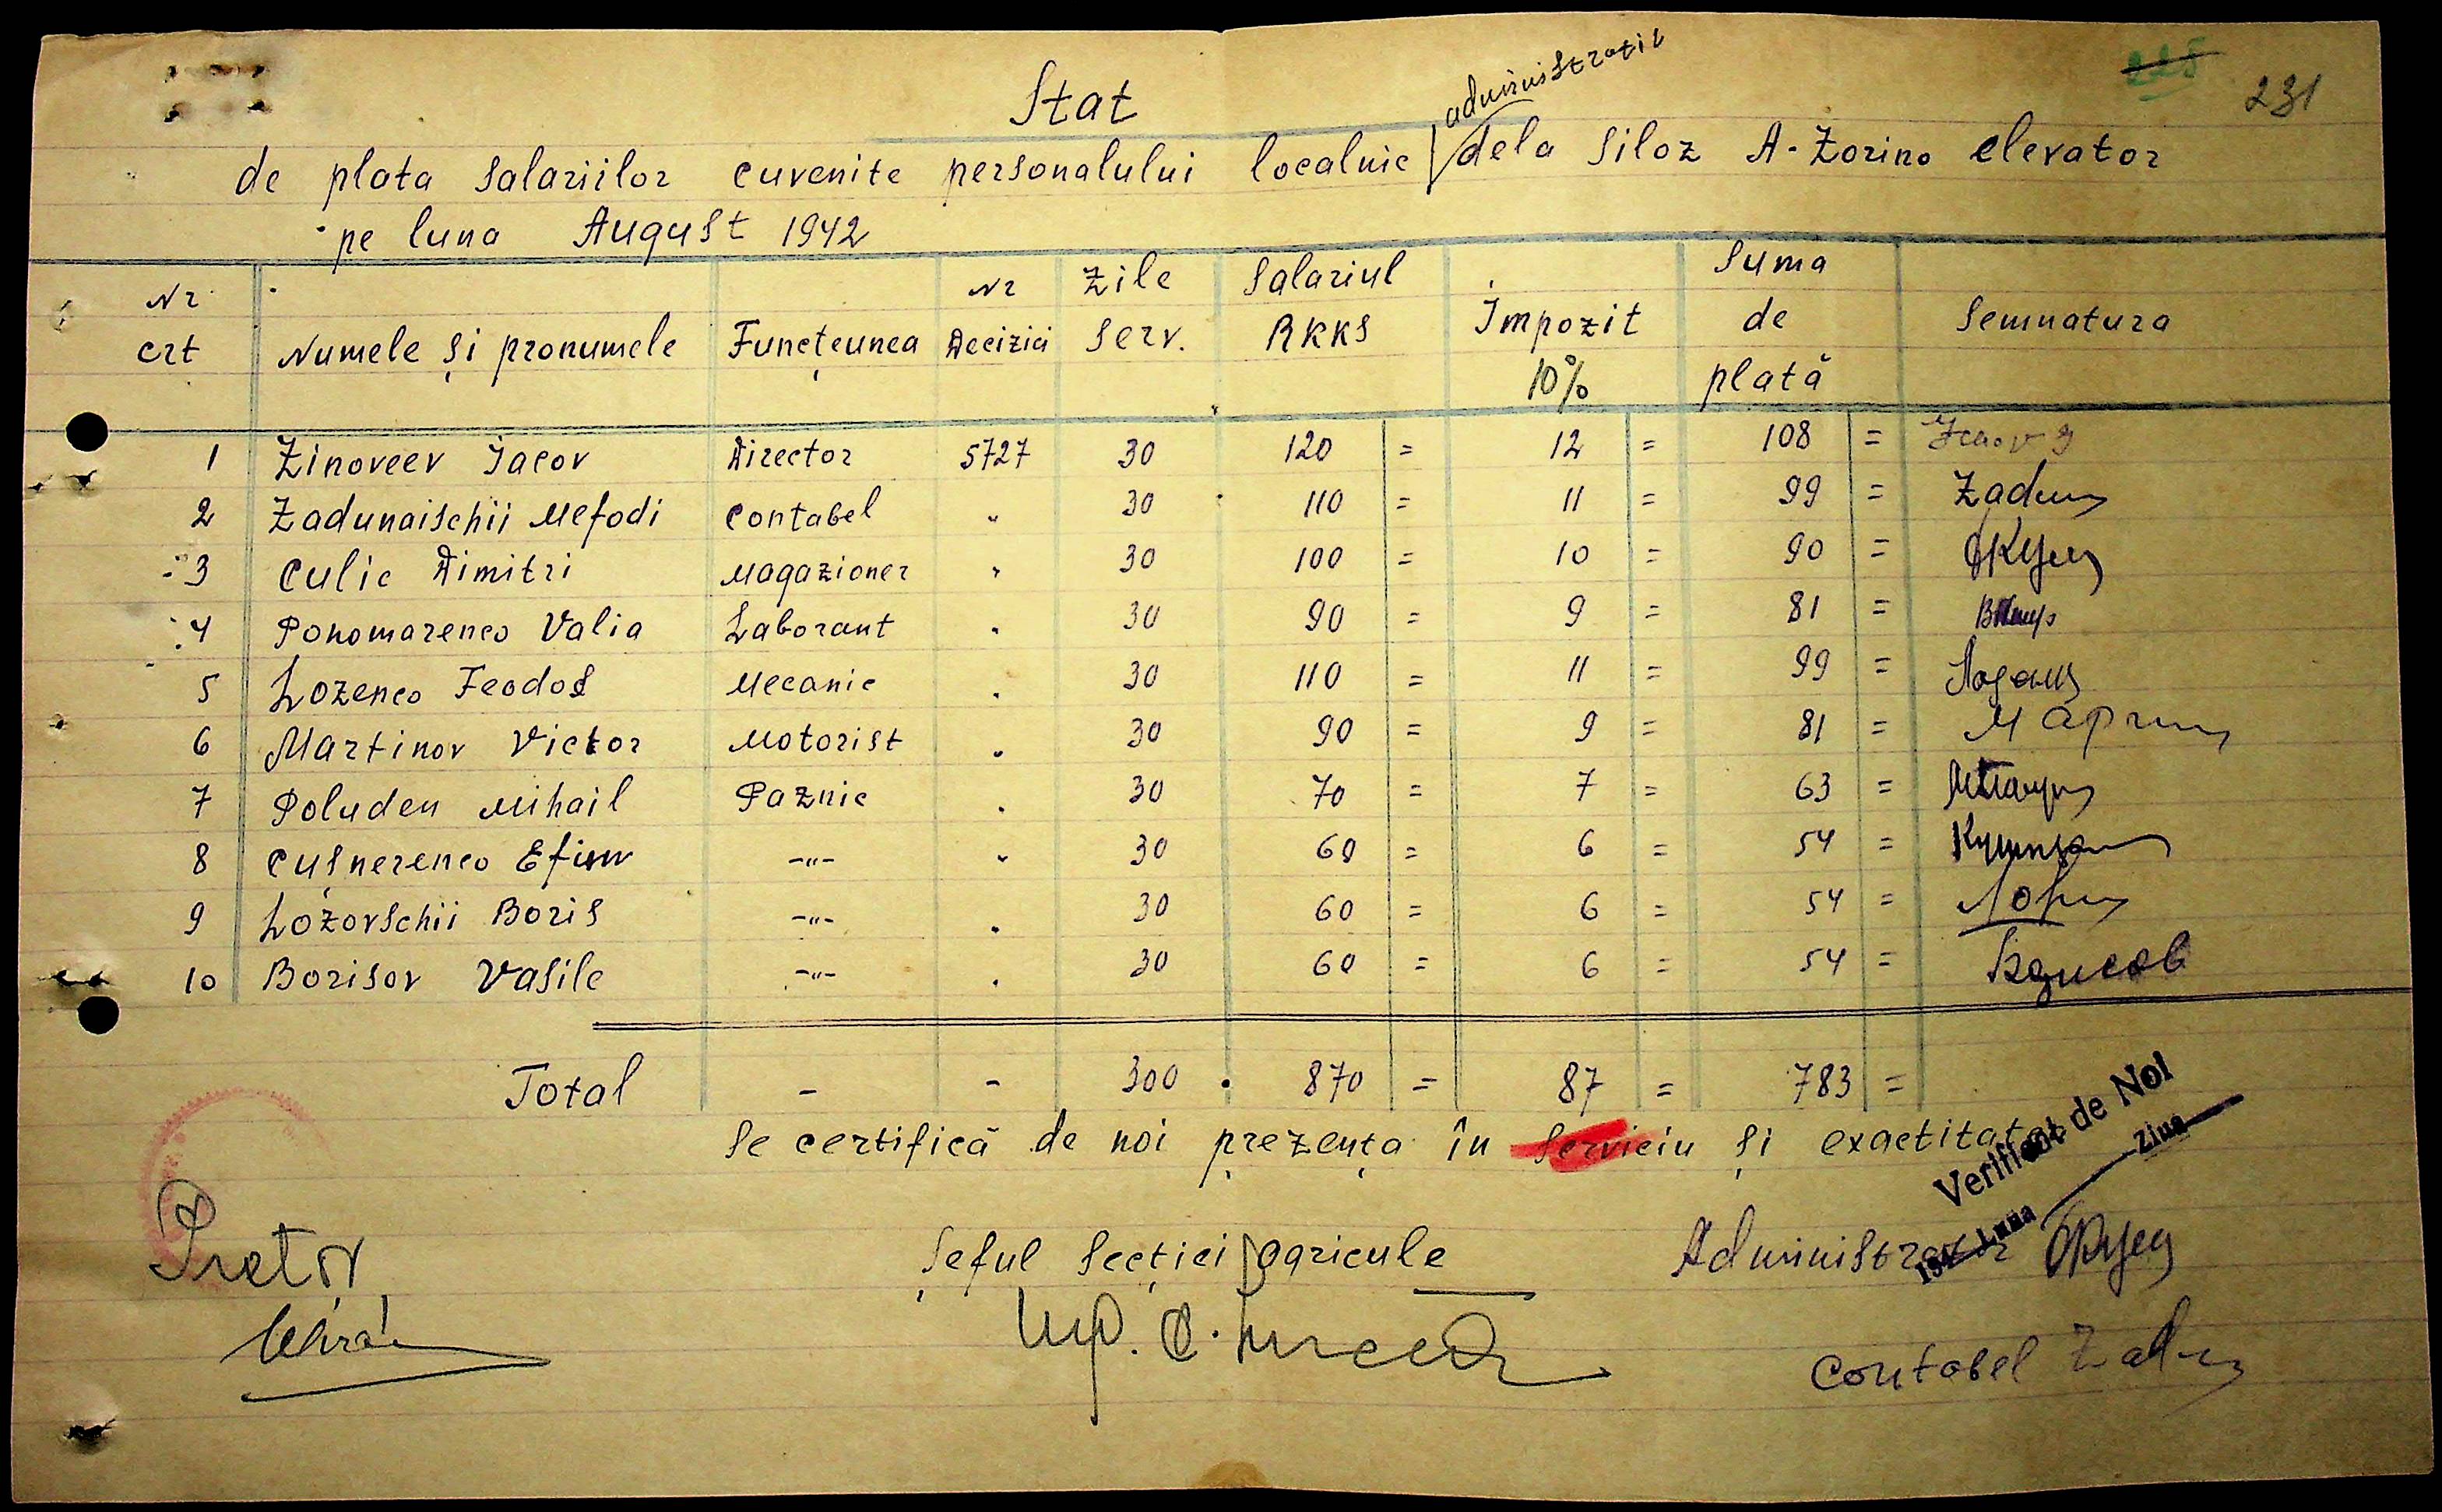 231
Stat
administrativ
de plata salariilor cuvenite personalului localnic dela Siloz A-Zorino elevator
pe luna August 1942
Nr crt Numele și pronumele Funcțeunea Nr Decizici Zile Serv. Salariul RKKS Impozit 10% Suma de plată Semnatura
1 Zinoveev Jacov Director 5727 30 120 = 12 = 108 =
2 Zadunaischii Mefodi Contabel " 30 110 = 11 = 99 = Zadun
3 Culic Dimitri Magazioner " 30 100 = 10 = 90 =
4 Ponomarenco Valia Laborant " 30 90 = 9 = 81 =
5 Lozenco Feodos Mecanic " 30 110 = 11 = 99 =
6 Martinov Victor Motorist " 30 90 = 9 = 81 = Март
7 Poluden Mihail Paznic " 30 70 = 7 = 63 =
8 Cușnerenco Efim -"- " 30 60 = 6 = 54 =
9 Lozovschii Boris -"- " 30 60 = 6 = 54 =
10 Borisov Vasile -"- " 30 60 = 6 = 54 = Борисов
Total - - 300 870 = 87 = 783 =
Se certifică de noi prezența în serviciu și exactitate
Verificat de Noi
194 Luna Ziua
Pretor Șeful Secției agricule Administrator
Contabel Zad